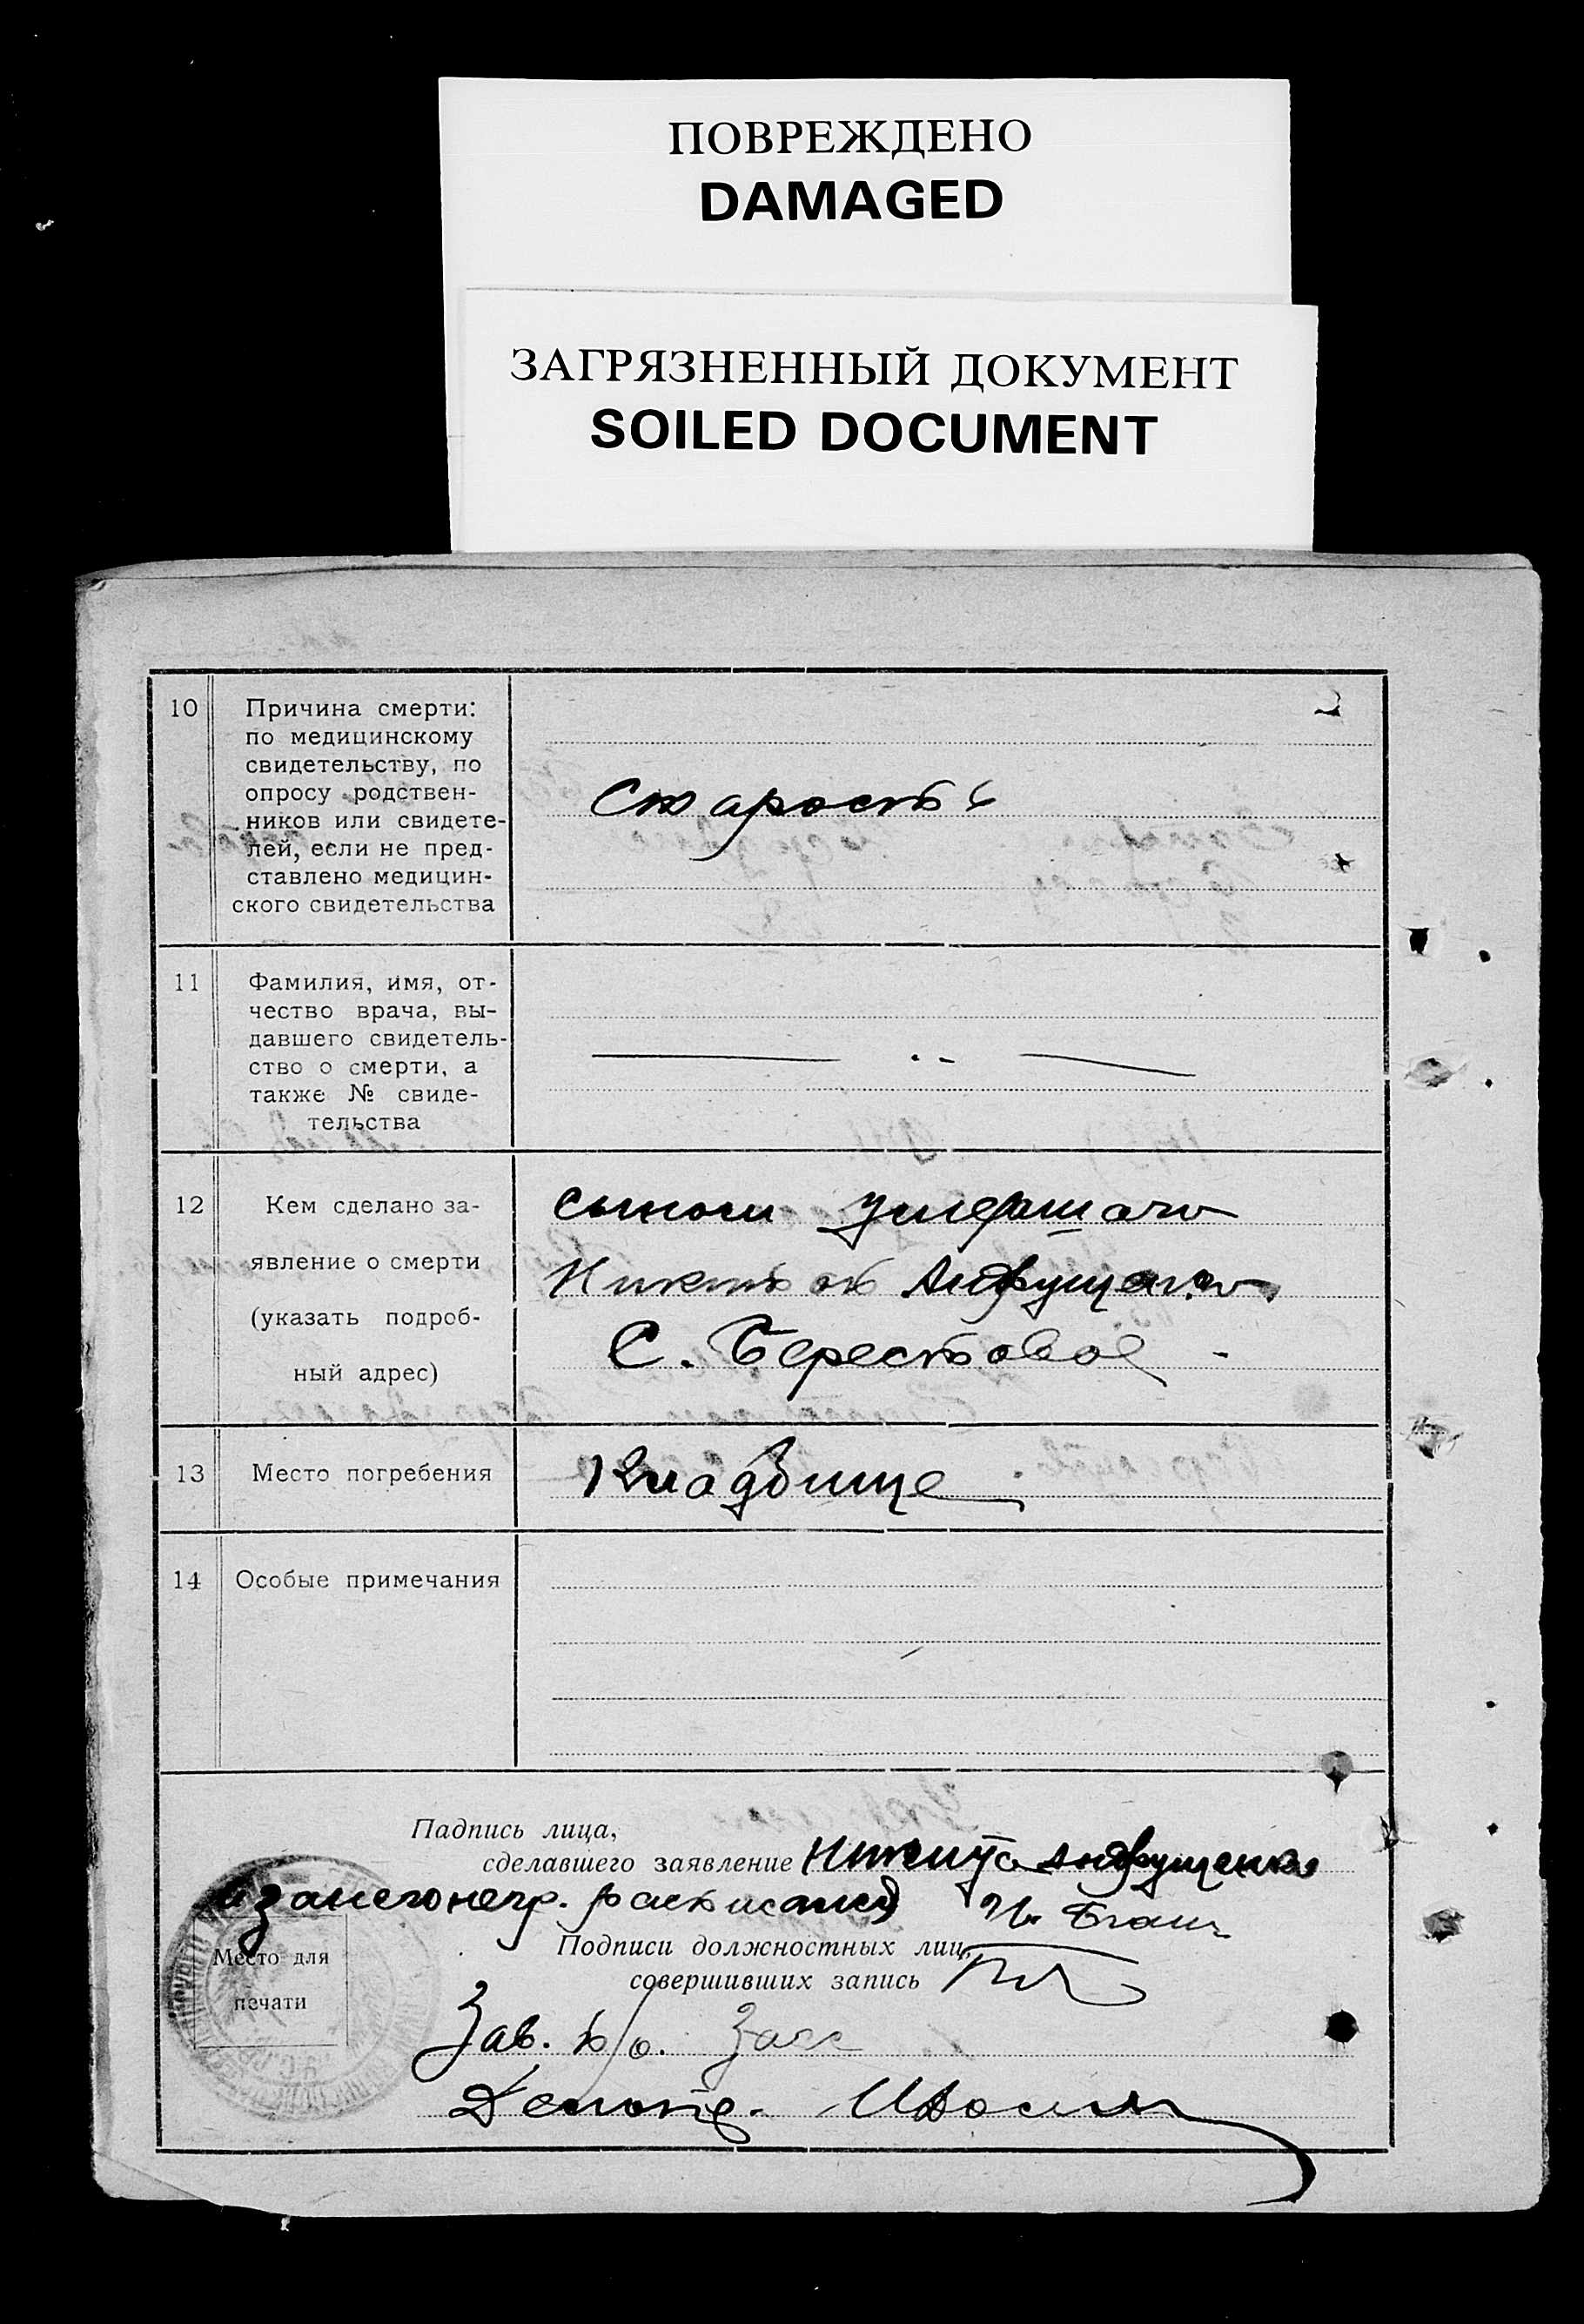 ПОВРЕЖДЕНО
DAMAGED
ЗАГРЯЗНЕННЫЙ ДОКУМЕНТ
SOILED DOCUMENT
10
Причина смерти:
по медицинскому
свидетельству, по
опросу родствен-
ников или свидете-
лей, если не пред-
ставлено медицин-
ского свидетельства
Старость
11
Фамилия, имя, от-
чество врача, вы-
давшего свидетель-
ство о смерти, а
также № свиде-
тельства
12
Кем сделано за-
явление о смерти
(указать подроб-
ный адрес)
сыном умершаго
С. Берестовое
13
Место погребения
Кладбище
14
Особые примечания
Падпись лица,
сделавшего заявление Никита Андрущенко
а за негр. расписался
Место для
печати
Подписи должностных лиц,
совершивших запись
Зав. б/о. Загс
Делопр.